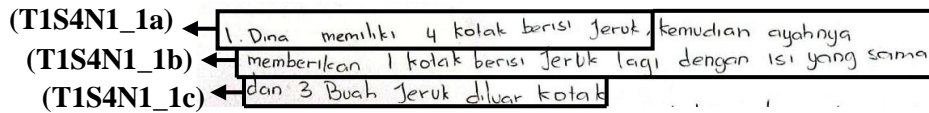 (T1S4N1_1a) 1. Dina memiliki 4 kotak berisi Jeruk, kemudian ayahnya
(T1S4N1_1b) memberikan 1 kotak berisi Jeruk lagi dengan isi yang sama
(T1S4N1_1c) dan 3 Buah Jeruk diluar kotak